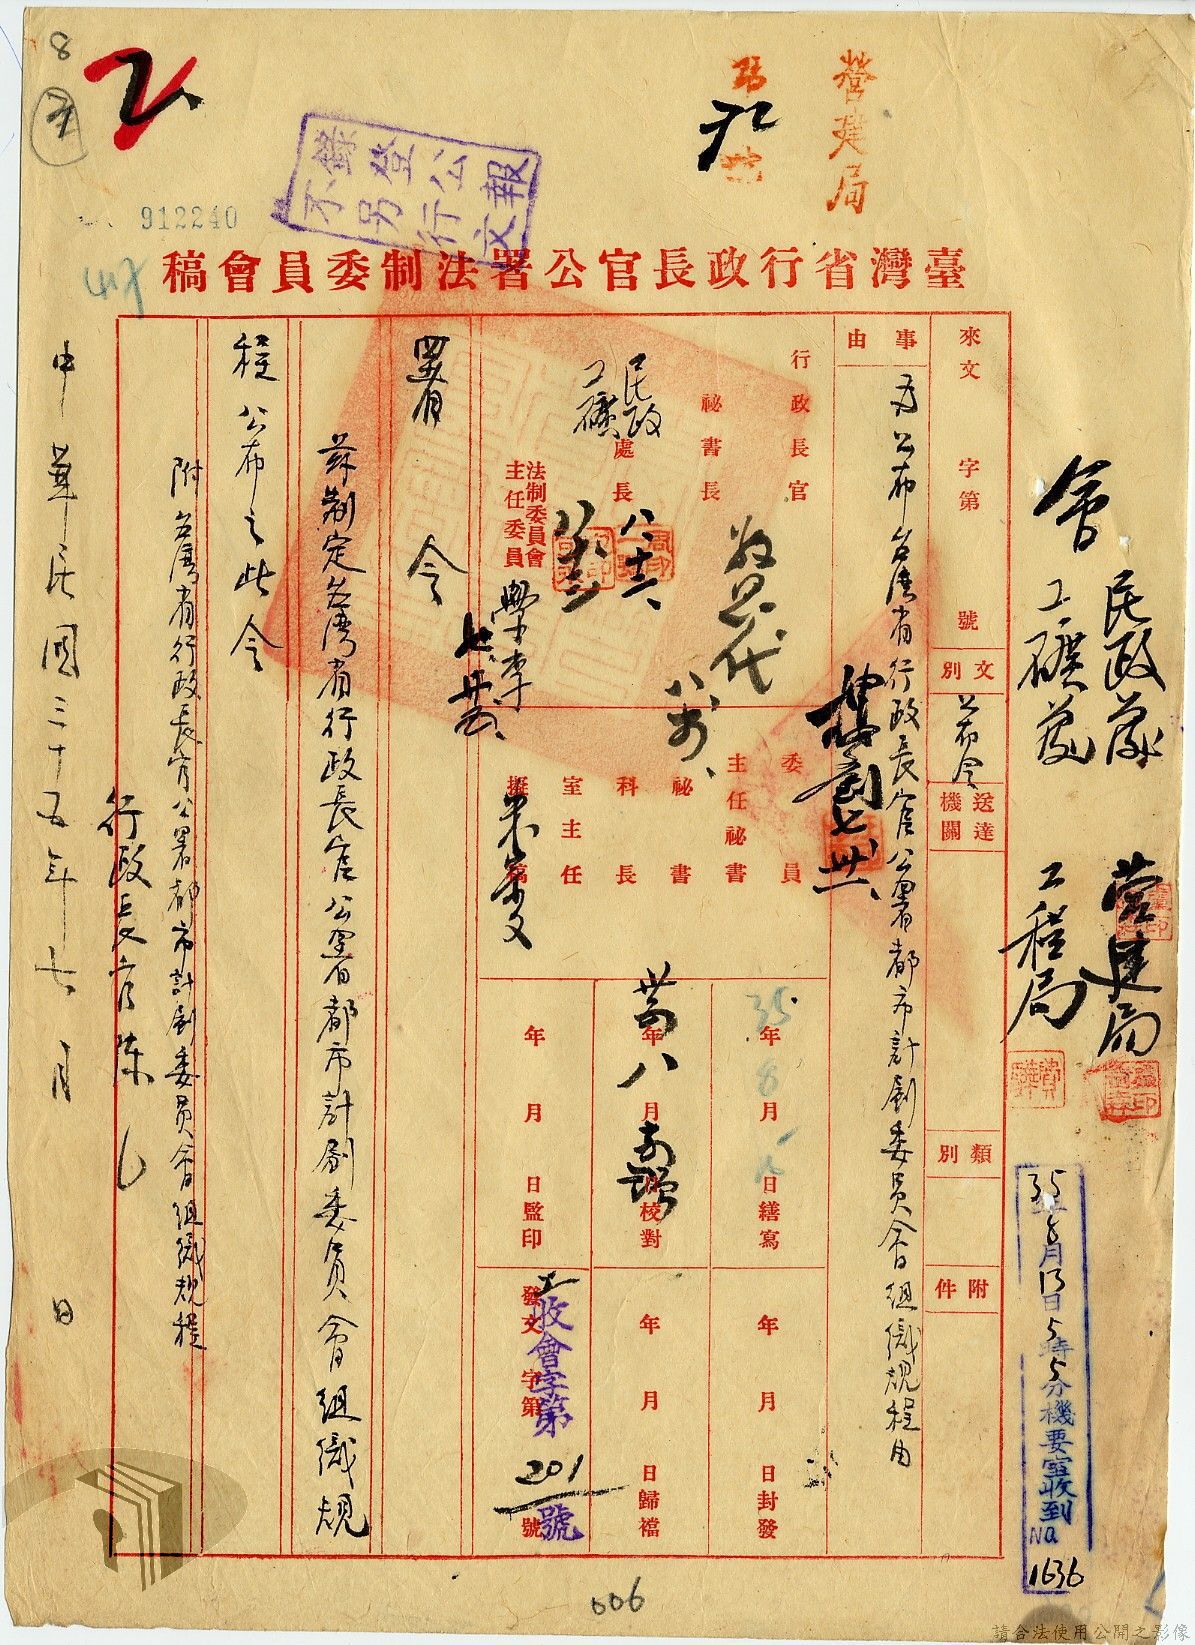 營建局
登公報
不另行文
912240
臺灣省行政長官公署法制委員會稿
會 民政處 營建局
工礦處 工程局
35年8月13日5時5分機要室收到
No 1636
來文 字第 號
文別 公布令
送達機關
類別
附件
事由
為公布台灣省行政長官公署都市計劃委員會組織規程由
行政長官
秘書長
民政
工礦
處長
法制委員會主任委員
委員
主任秘書
秘書
科長
室主任
擬稿
35年8月 日繕寫
年八月 日校對
年 月 日監印
年 月 日封發
年 月 日歸檔
發文 字第 號
收會字第201號
署 令
茲制定台灣省行政長官公署都市計劃委員會組織規
程公布之此令
附台灣省行政長官公署都市計劃委員會組織規程
行政長官陳
中華民國三十五年七月 日
006
請合法使用公開之影像